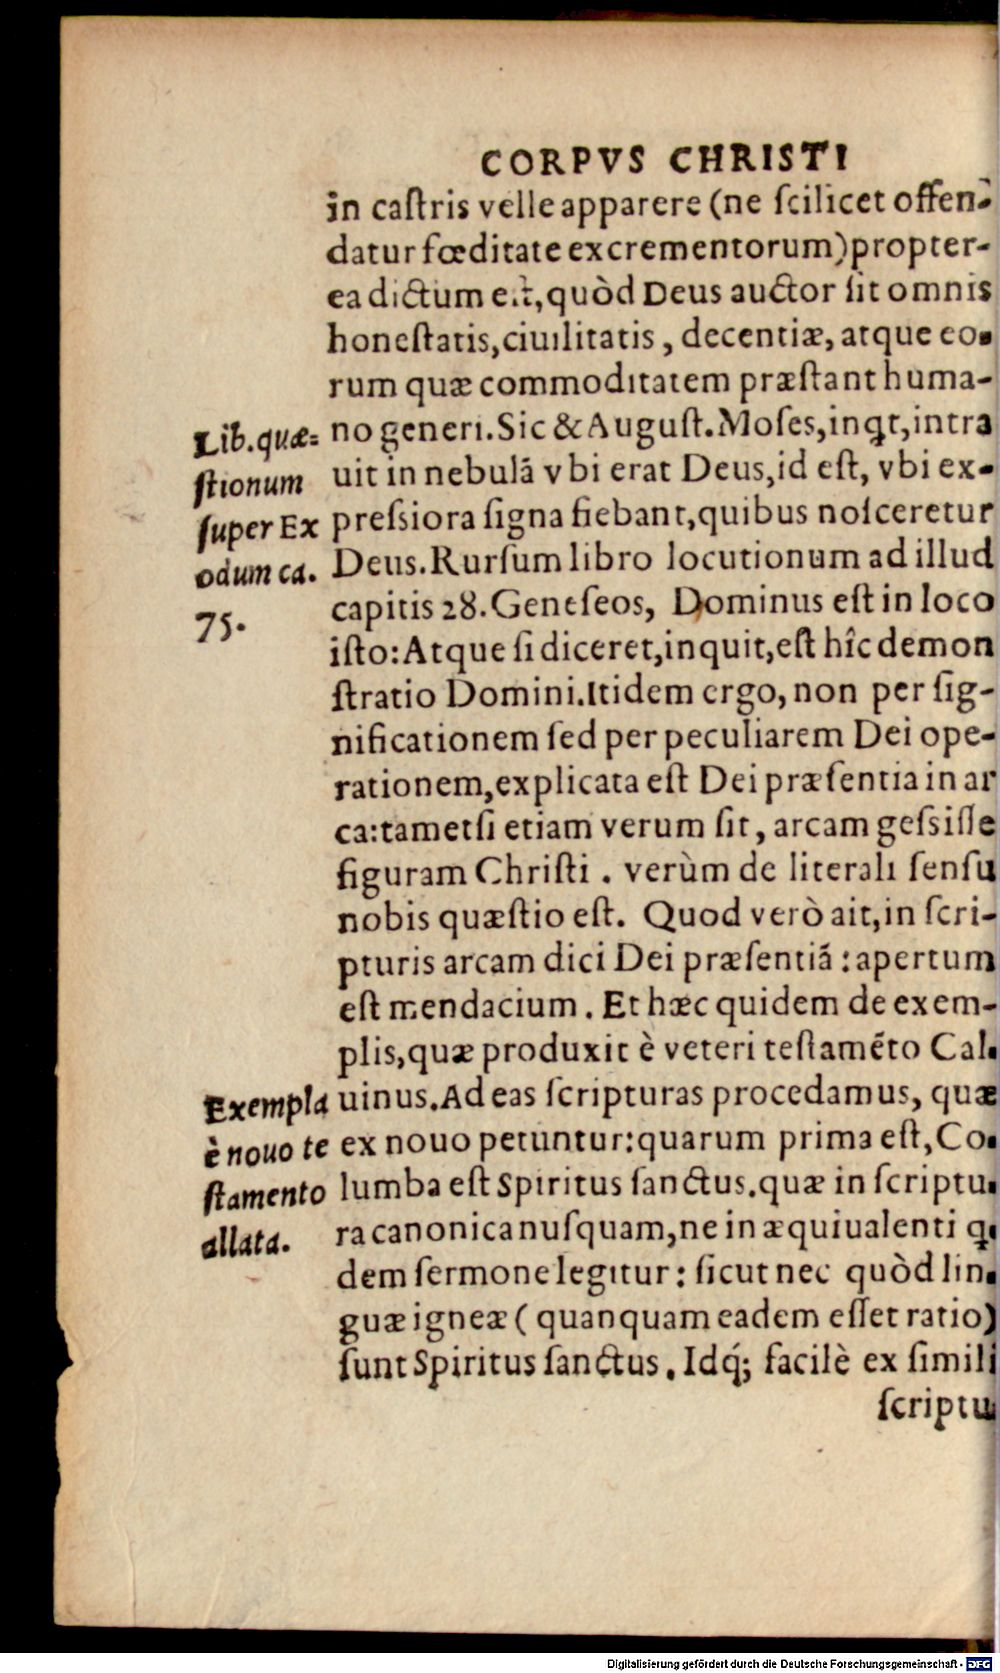 CORPVS CHRISTI
in caſtris velle apparere (ne ſcilicet offen-
datur fœditate excrementorum) propter-
ea dictum eſt, quòd Deus auctor ſit omnis
honeſtatis, ciuilitatis, decentiæ, atque eo-
rum quæ commoditatem præſtant huma-
no generi. Sic & Auguſt. Moſes, inqt, intra
uit in nebulã vbi erat Deus, id eſt, vbi ex-
preſsiora ſigna fiebant, quibus noſceretur
Deus. Rurſum libro locutionum ad illud
capitis 28. Geneſeos, Dominus eſt in loco
iſto: Atque ſi diceret, inquit, eſt hîc demon
ſtratio Domini. Itidem ergo, non per ſig-
nificationem ſed per peculiarem Dei ope-
rationem, explicata eſt Dei præſentia in ar
ca: tametſi etiam verum ſit, arcam geſsiſſe
figuram Chriſti . verùm de literali ſenſu
nobis quæſtio eſt. Quod verò ait, in ſcri-
pturis arcam dici Dei præſentiã : apertum
eſt mendacium . Et hæc quidem de exem-
plis, quæ produxit è veteri teſtamẽto Cal-
uinus. Ad eas ſcripturas procedamus, quæ
ex nouo petuntur: quarum prima eſt, Co-
lumba eſt Spiritus ſanctus. quæ in ſcriptu-
ra canonica nuſquam, ne in æquiualenti q-
dem ſermone legitur : ſicut nec quòd lin-
guæ igneæ ( quanquam eadem eſſet ratio)
ſunt Spiritus ſanctus. Idq́; facilè ex ſimili
ſcriptu-
Lib. quæ-
ſtionum
ſuper Ex
odum ca.
75.
Exempla
è nouo te
ſtamento
allata.
Digitalisierung gefördert durch die Deutsche Forschungsgemeinschaft - DFG